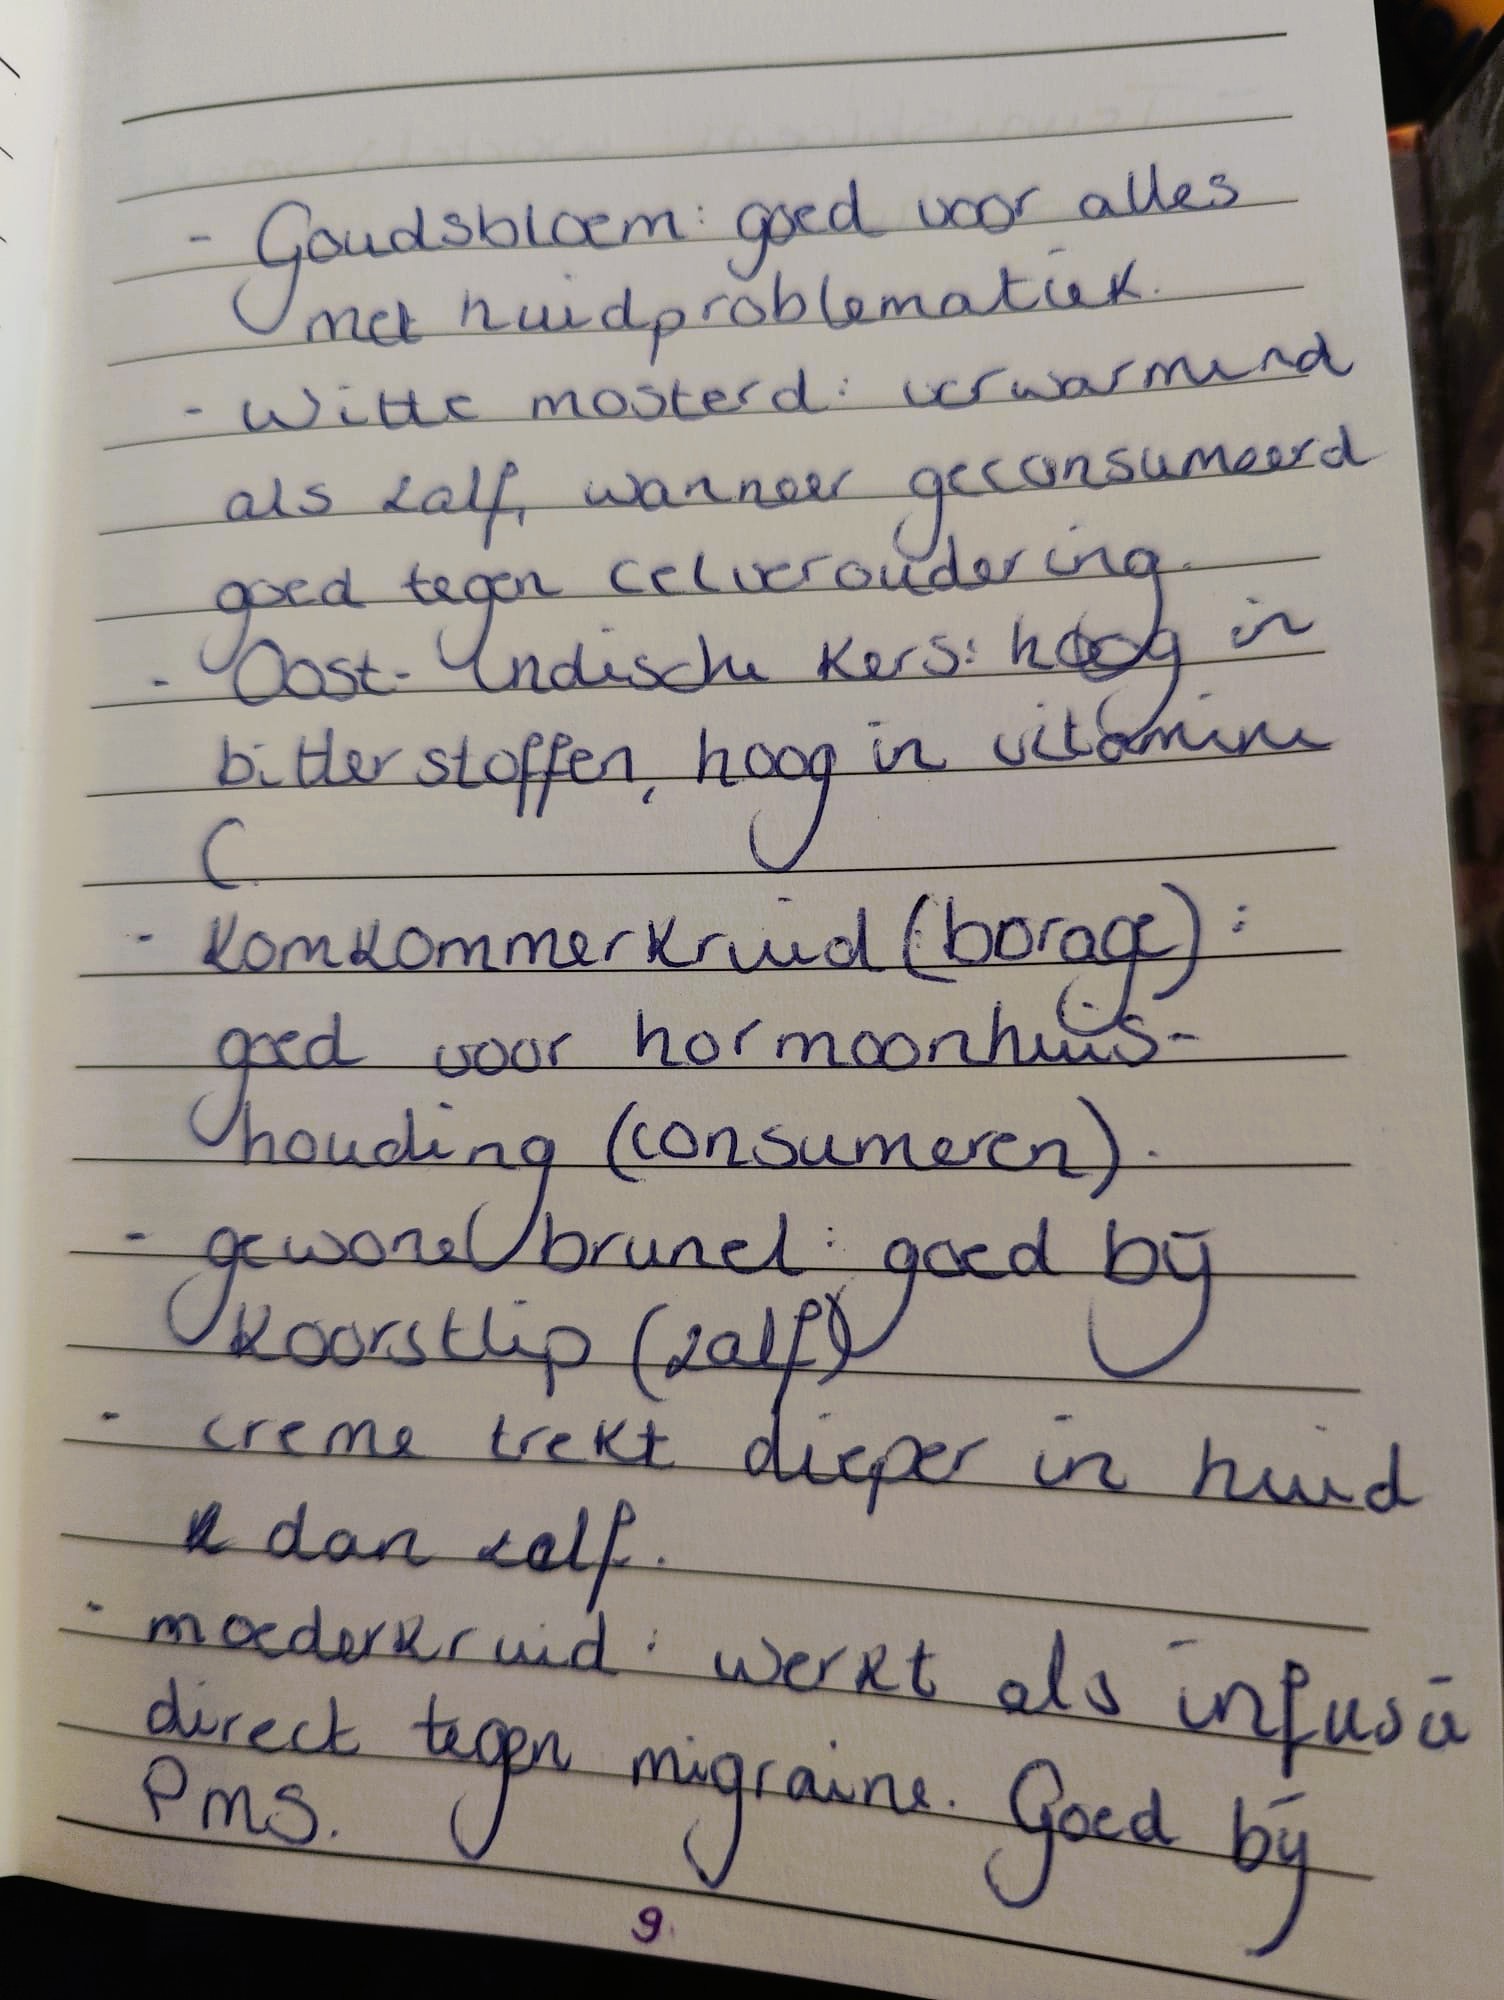 - Goudsbloem: goed voor alles
met huidproblematiek.
- Witte mosterd: verwarmend
als zalf, wanneer geconsumeerd
goed tegen celveroudering.
- Oost-Indische kers: hoog in
bitterstoffen, hoog in vitamine
C.
- Komkommerkruid (borage):
goed voor hormoonhuis-
houding (consumeren).
- gewone brunel: goed bij
koorstlip (zalf)
- creme trekt dieper in huid
dan zalf.
- moederkruid: werkt als infusie
direct tegen migraine. Goed bij
Pms.
9.